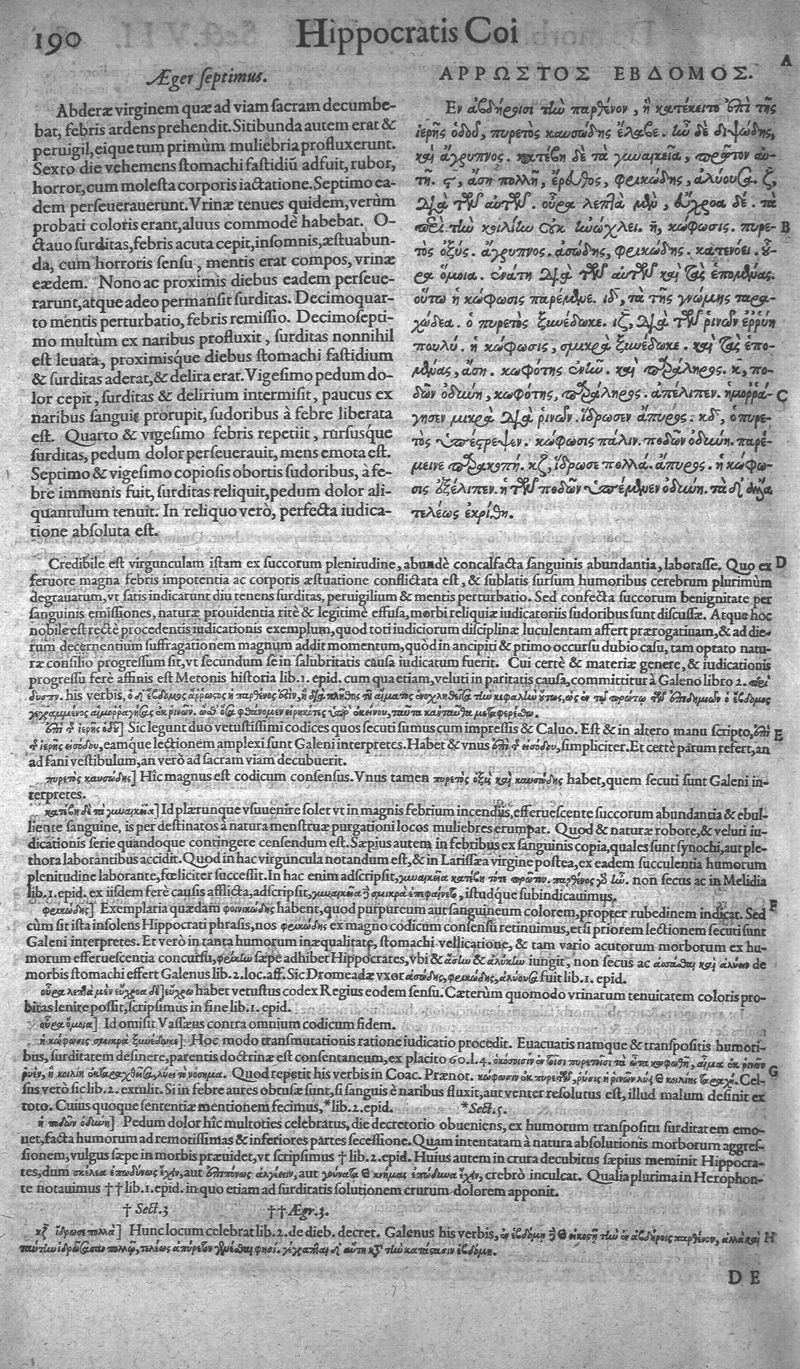 190
Hippocratis Coi
Æger septimus.
Abderæ virginem quæ ad viam sacram decumbe-
bat, febris ardens prehendit. Sitibunda autem erat &
peruigil, eique tum primùm muliebria profluxerunt.
Sexto die vehemens stomachi fastidiū adfuit, rubor,
horror, cum molesta corporis iactatione. Septimo ea-
dem perseuerauerunt. Vrinæ tenues quidem, verùm
probati coloris erant, aluus commodè habebat. O-
ctauo surditas, febris acuta cepit, insomnis, æstuabun-
da, cum horroris sensu, mentis erat compos, vrinæ
eædem. Nono ac proximis diebus eadem perseue-
rarunt, atque adeo permansit surditas. Decimoquar-
to mentis perturbatio, febris remissio. Decimosepti-
mo multùm ex naribus profluxit, surditas nonnihil
est leuata, proximisque diebus stomachi fastidium
& surditas aderat, & delira erat. Vigesimo pedum do-
lor cepit, surditas & delirium intermisit, paucus ex
naribus sanguis prorupit, sudoribus à febre liberata
est. Quarto & vigesimo febris repetiit, rursusque
surditas, pedum dolor perseuerauit, mens emota est.
Septimo & vigesimo copiosis obortis sudoribus, à fe-
bre immunis fuit, surditas reliquit, pedum dolor ali-
quantulum tenuit. In reliquo verò, perfecta iudica-
tione absoluta est.
ΑΡΡΩΣΤΟΣ ΕΒΔΟΜΟΣ.
A
Ἐν ἀβδήροισι τὴν παρθένον, ἣ κατέκειτο ἐπὶ τῆς
ἱερῆς ὁδοῦ, πυρετὸς καυσώδης ἔλαβε. ἦν δὲ διψώδης,
καὶ ἄγρυπνος. κατέβη δὲ τὰ γυναικεῖα, πρῶτον αὐ-
τῇ. ϛ, ἄση πολλὴ, ἔρευθος, φρικώδης, ἀλύουσα. ζ,
διὰ τῶν αὐτῶν. οὖρα λεπτὰ μὲν, εὔχροα δέ. τὰ
περὶ τὴν κοιλίην οὐκ ἠνώχλει. η, κώφωσις. πυρε-
B
τὸς ὀξύς. ἄγρυπνος. ἀσώδης, φρικώδης. κατενόει. οὖ-
ρα ὅμοια. ἐνάτῃ διὰ τῶν αὐτῶν καὶ τὰς ἑπομένας.
οὕτω ἡ κώφωσις παρέμενε. ιδ, τὰ τῆς γνώμης ταρα-
χώδεα. ὁ πυρετὸς ξυνέδωκε. ιζ, διὰ τῶν ῥινῶν ἐρρύη
πουλύ. ἡ κώφωσις, σμικρὰ ξυνέδωκε. καὶ τὰς ἑπο-
μένας, ἄση. κωφότης ἐνῆν. καὶ παράληρος. κ, πο-
δῶν ὀδύνη, κωφότης, παράληρος. ἀπέλιπεν. ᾑμορρά-
C
γησεν μικρὰ διὰ ῥινῶν. ἵδρωσεν ἄπυρος. κδ, ὁ πυρε-
τὸς ὑπέστρεψεν. κώφωσις πάλιν. ποδῶν ὀδύνη. παρέ-
μεινε παρακοπή. κζ, ἵδρωσε πολλά. ἄπυρος. ἡ κώφω-
σις ἐξέλιπεν. ἡ τῶν ποδῶν ὑπέμενεν ὀδύνη. τὰ δ' ἄλλα
τελέως ἐκρίθη.
Credibile est virgunculam istam ex succorum plenitudine, abundè concalfacta sanguinis abundantia, laborasse. Quo ex
D
feruore magna febris impotentia ac corporis æstuatione conflictata est, & sublatis sursum humoribus cerebrum plurimùm
degrauatum, vt satis indicarunt diu tenens surditas, peruigilium & mentis perturbatio. Sed confecta succorum benignitate per
sanguinis emissiones, naturæ prouidentia ritè & legitimè effusa, morbi reliquiæ iudicatoriis sudoribus sunt discussæ. Atque hoc
nobile est rectè procedentis iudicationis exemplum, quod toti iudiciorum disciplinæ luculentam affert prærogatiuam, & ad die-
rum decernentium suffragationem magnum addit momentum, quòd in ancipiti & primo occursu dubio casu, tam optato natu-
ræ consilio progressum sit, vt secundum se in salubritatis causa iudicatum fuerit. Cui certè & materiæ genere, & iudicationis
progressu ferè affinis est Metonis historia lib. 1. epid. cum qua etiam, veluti in paritatis causa, committitur à Galeno libro 2.
his verbis,
Sic legunt duo vetustissimi codices quos secuti sumus cum impressis & Caluo. Est & in altero manu scripto,
E
eamque lectionem amplexi sunt Galeni interpretes. Habet & vnus simpliciter. Et certè parum refert, an
ad fani vestibulum, an verò ad sacram viam decubuerit.
πυρετὸς καυσώδης] Hîc magnus est codicum consensus. Vnus tamen πυρετὸς ὀξὺς καὶ καυσώδης habet, quem secuti sunt Galeni in-
terpretes.
κατέβη δὲ τὰ γυναικεῖα] Id plærunque vsuuenire solet vt in magnis febrium incendiis, efferuescente succorum abundantia & ebul-
liente sanguine, is per destinatos à natura menstruæ purgationi locos muliebres erumpat. Quod & naturæ robore, & veluti iu-
dicationis serie quandoque contingere censendum est. Sæpius autem in febribus ex sanguinis copia, quales sunt synochi, aut ple-
thora laborantibus accidit. Quod in hac virguncula notandum est, & in Larissæa virgine postea, ex eadem succulentia humorum
plenitudine laborante, fœliciter successit. In hac enim adscripsit, non secus ac in Melidia
lib. 1. epid. ex iisdem ferè causis afflicta, adscripsit, istudque subindicauimus.
φρικώδης] Exemplaria quædam φοινικώδης habent, quod purpureum aut sanguineum colorem, propter rubedinem indicat. Sed
F
cùm sit ista insolens Hippocrati phrasis, nos φρικώδης ex magno codicum consensu retinuimus, etsi priorem lectionem secuti sunt
Galeni interpretes. Et verò in tanta humorum inæqualitate, stomachi vellicatione, & tam vario acutorum morborum ex hu-
morum efferuescentia concursu, sæpe adhibet Hippocrates, vbi & iungit, non secus ac de
morbis stomachi effert Galenus lib. 2. loc. aff. Sic Dromeadæ vxor ἀσώδης, φρικώδης, ἀλύουσα fuit lib. 1. epid.
οὖρα λεπτὰ μὲν εὔχροα δὲ] εὔχρω habet vetustus codex Regius eodem sensu. Cæterùm quomodo vrinarum tenuitatem coloris pro-
bitas lenire possit, scripsimus in fine lib. 1. epid.
οὖρα ὅμοια] Id omisit Vassæus contra omnium codicum fidem.
ἡ κώφωσις σμικρὰ ξυνέδωκε] Hoc modo transmutationis ratione iudicatio procedit. Euacuatis namque & transpositis humori-
bus, surditatem desinere, parentis doctrinæ est consentaneum, ex placito 60. l. 4.
Quod repetit his verbis in Coac. Prænot. Cel-
G
sus verò sic lib. 2. extulit. Si in febre aures obtusæ sunt, si sanguis è naribus fluxit, aut venter resolutus est, illud malum desinit ex
toto. Cuius quoque sententiæ mentionem fecimus, * lib. 2. epid. * Sect. 5.
ἡ ποδῶν ὀδύνη] Pedum dolor hîc multoties celebratus, die decretorio obueniens, ex humorum transpositu surditatem emo-
uet, facta humorum ad remotissimas & inferiores partes secessione. Quam intentatam à natura absolutionis morborum aggres-
sionem, vulgus sæpe in morbis præuidet, vt scripsimus † lib. 2. epid. Huius autem in crura decubitus sæpius meminit Hippocra-
tes, dum aut aut crebrò inculcat. Qualia plurima in Herophon-
te notauimus †† lib. 1. epid. in quo etiam ad surditatis solutionem crurum dolorem apponit.
† Sect. 3 †† Ægr. 3.
κζ ἵδρωσε πολλὰ] Hunc locum celebrat lib. 2. de dieb. decret. Galenus his verbis,
H
D E